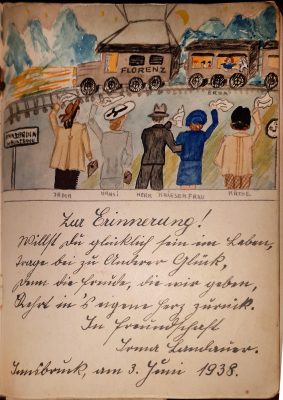 FLORENZ
ERNA
INNSBRUCK
HANSI
HERR
FRAU
KÄTHE
Zur Erinnerung!
Willst du glücklich sein im Leben,
trage bei zu Anderer Glück,
denn die Freude, die wir geben,
kehrt in's eigene Herz zurück.
In Freundschaft
Irma Landauer.
Innsbruck, am 3. Juni 1938.